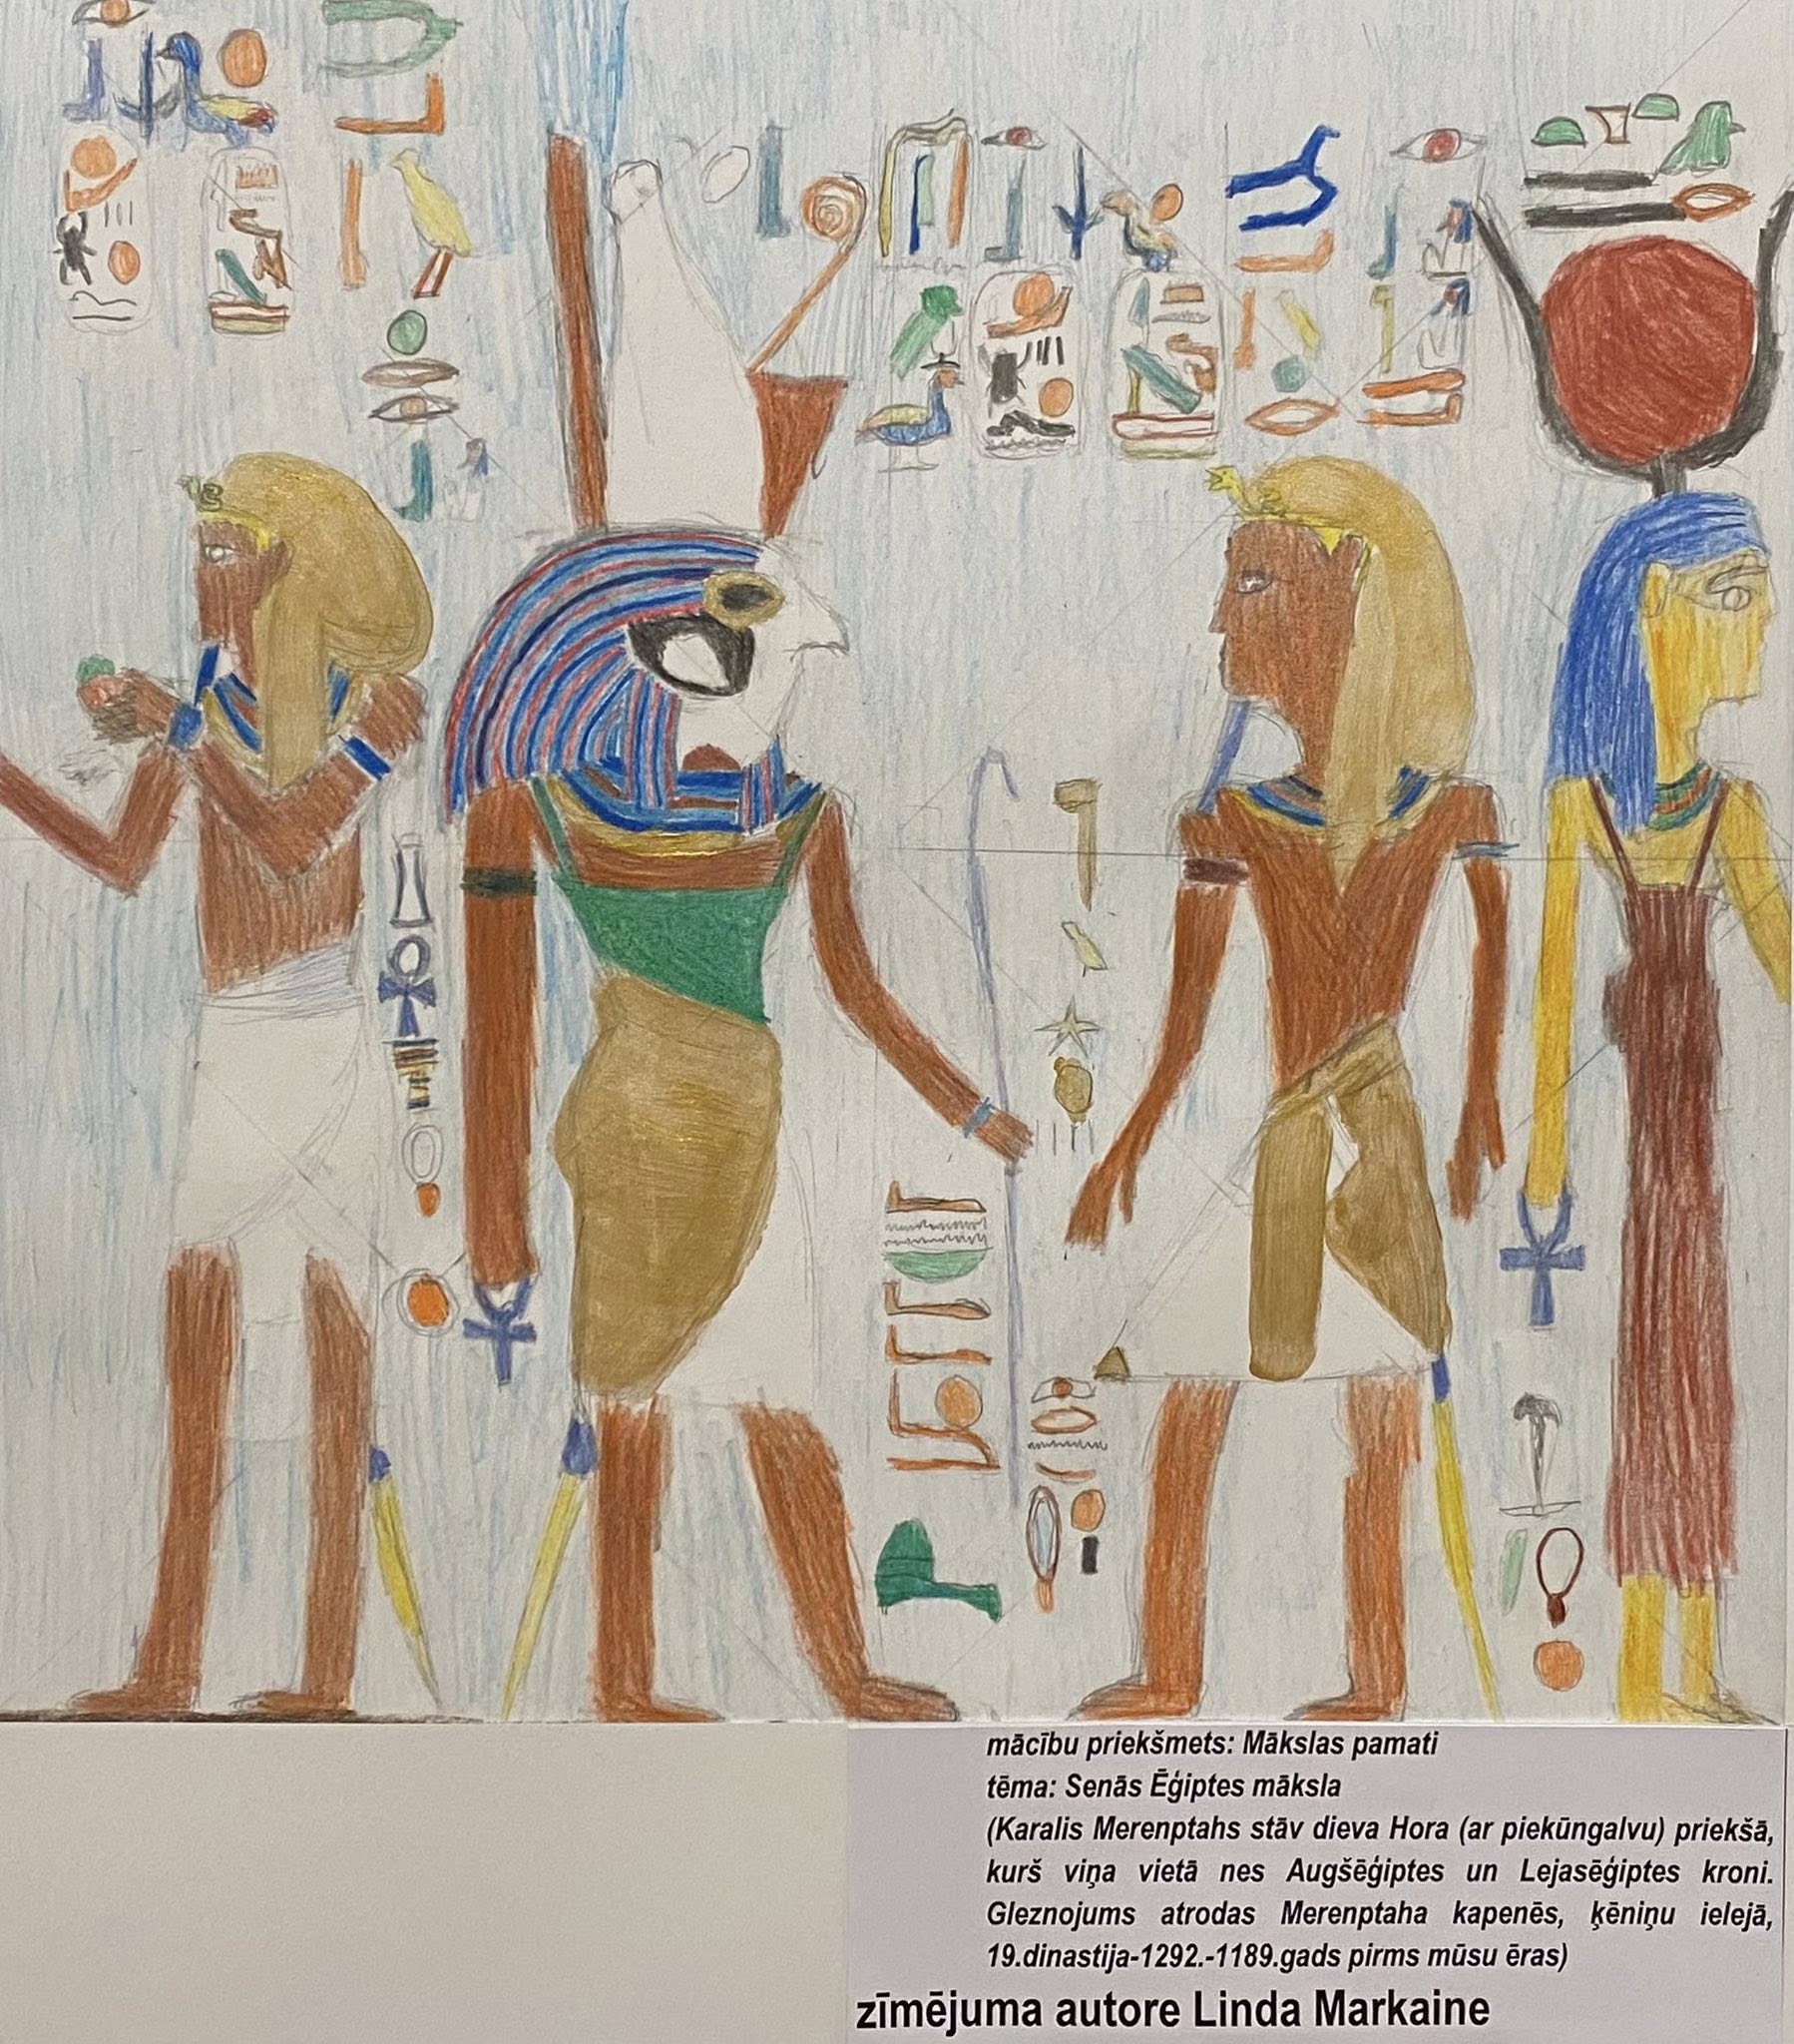 mācību priekšmets: Mākslas pamati
tēma: Senās Ēģiptes māksla
(Karalis Merenptahs stāv dieva Hora (ar piekūngalvu) priekšā,
kurš viņa vietā nes Augšēģiptes un Lejasēģiptes kroni.
Gleznojums atrodas Merenptaha kapenēs, ķēniņu ielejā,
19.dinastija-1292.-1189.gads pirms mūsu ēras)
zīmējuma autore Linda Markaine